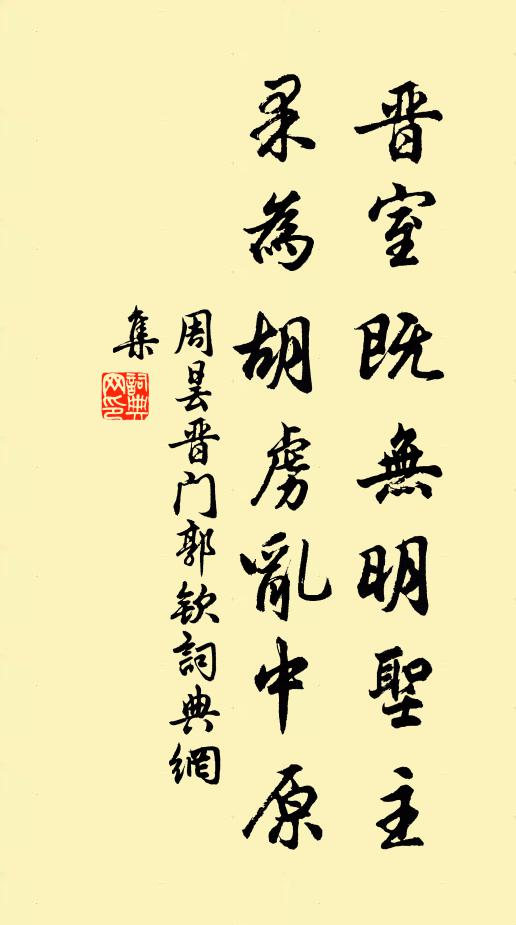 晋室既無明聖主
果為胡虜亂中原
周昙晋门郭欽詞典網
集
詞典
网印